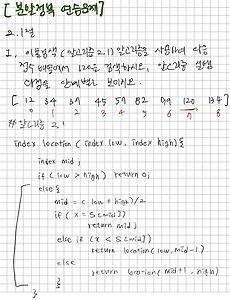 [ 분할정복 연습문제 ]
2.1절
1. 이분검색 (알고리즘 2.1) 알고리즘을 사용하여 다음
정수 배열에서 120을 검색하시오. 알고리즘 실행
과정을 단계별로 보이시오.
[ 12 34 37 45 57 82 99 120 134 ]
0 1 2 3 4 5 6 7 8
## 알고리즘 2.1
index location (index low, index high){
index mid;
if (low > high) return 0;
else {
mid = (low + high)/2
if (x = S[mid])
return mid;
else if (x < S[mid])
return location(low, mid-1)
else
return location(mid+1, high)
}
}